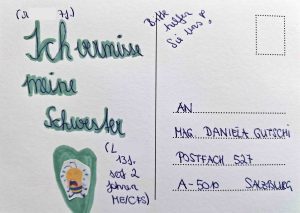 7J.)
Ich vermisse
meine
Schwester
(L
13J.
seit 2
Jahren
ME/CFS)
Bitte
helfen
Sie uns!
AN
MAG. DANIELA GUTSCHI
POSTFACH 527
A-5010 SALZBURG